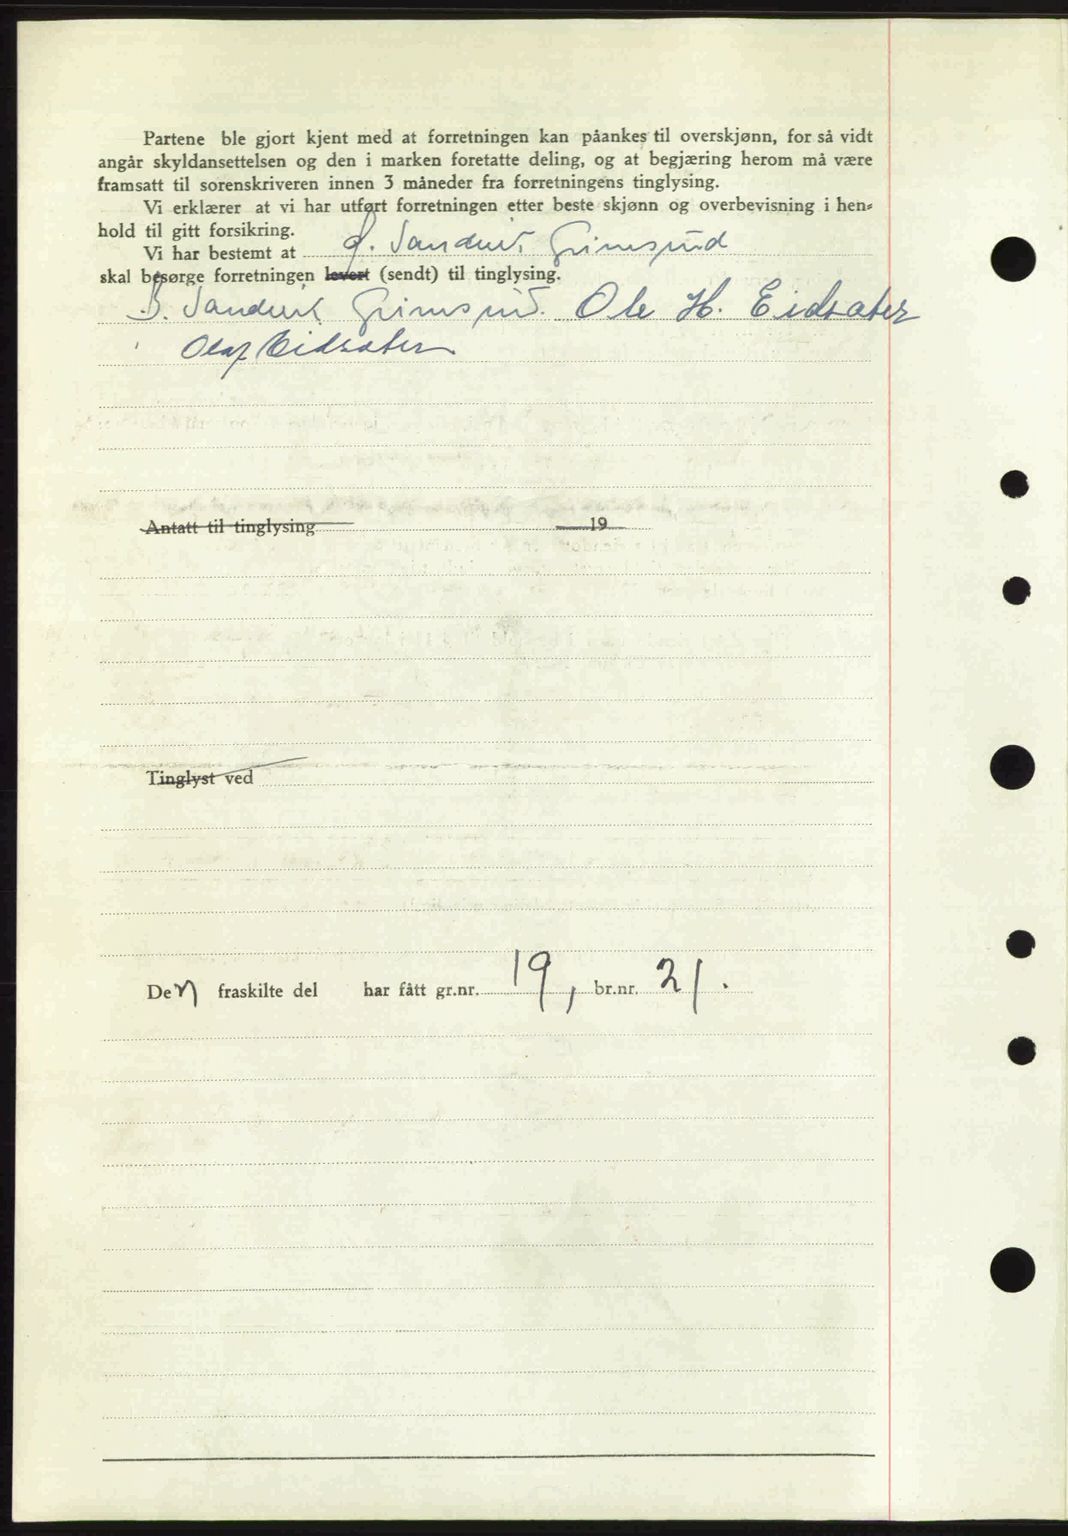 Partene ble gjort kjent med at forretningen kan påankes til overskjønn, for så vidt
angår skyldansettelsen og den i marken foretatte deling, og at begjæring herom må være
framsatt til sorenskriveren innen 3 måneder fra forretningens tinglysing.
Vi erklærer at vi har utført forretningen etter beste skjønn og overbevisning i hen-
hold til gitt forsikring.
Vi har bestemt at Sandvik Grimsrud
skal besørge forretningen levert (sendt) til tinglysing.
B. Sandvik Grimsrud. Ole H. Eidsater
Olaf Eidsater
Antatt til tinglysing 19
Tinglyst ved
Den fraskilte del har fått gr.nr. 19, br.nr. 21.